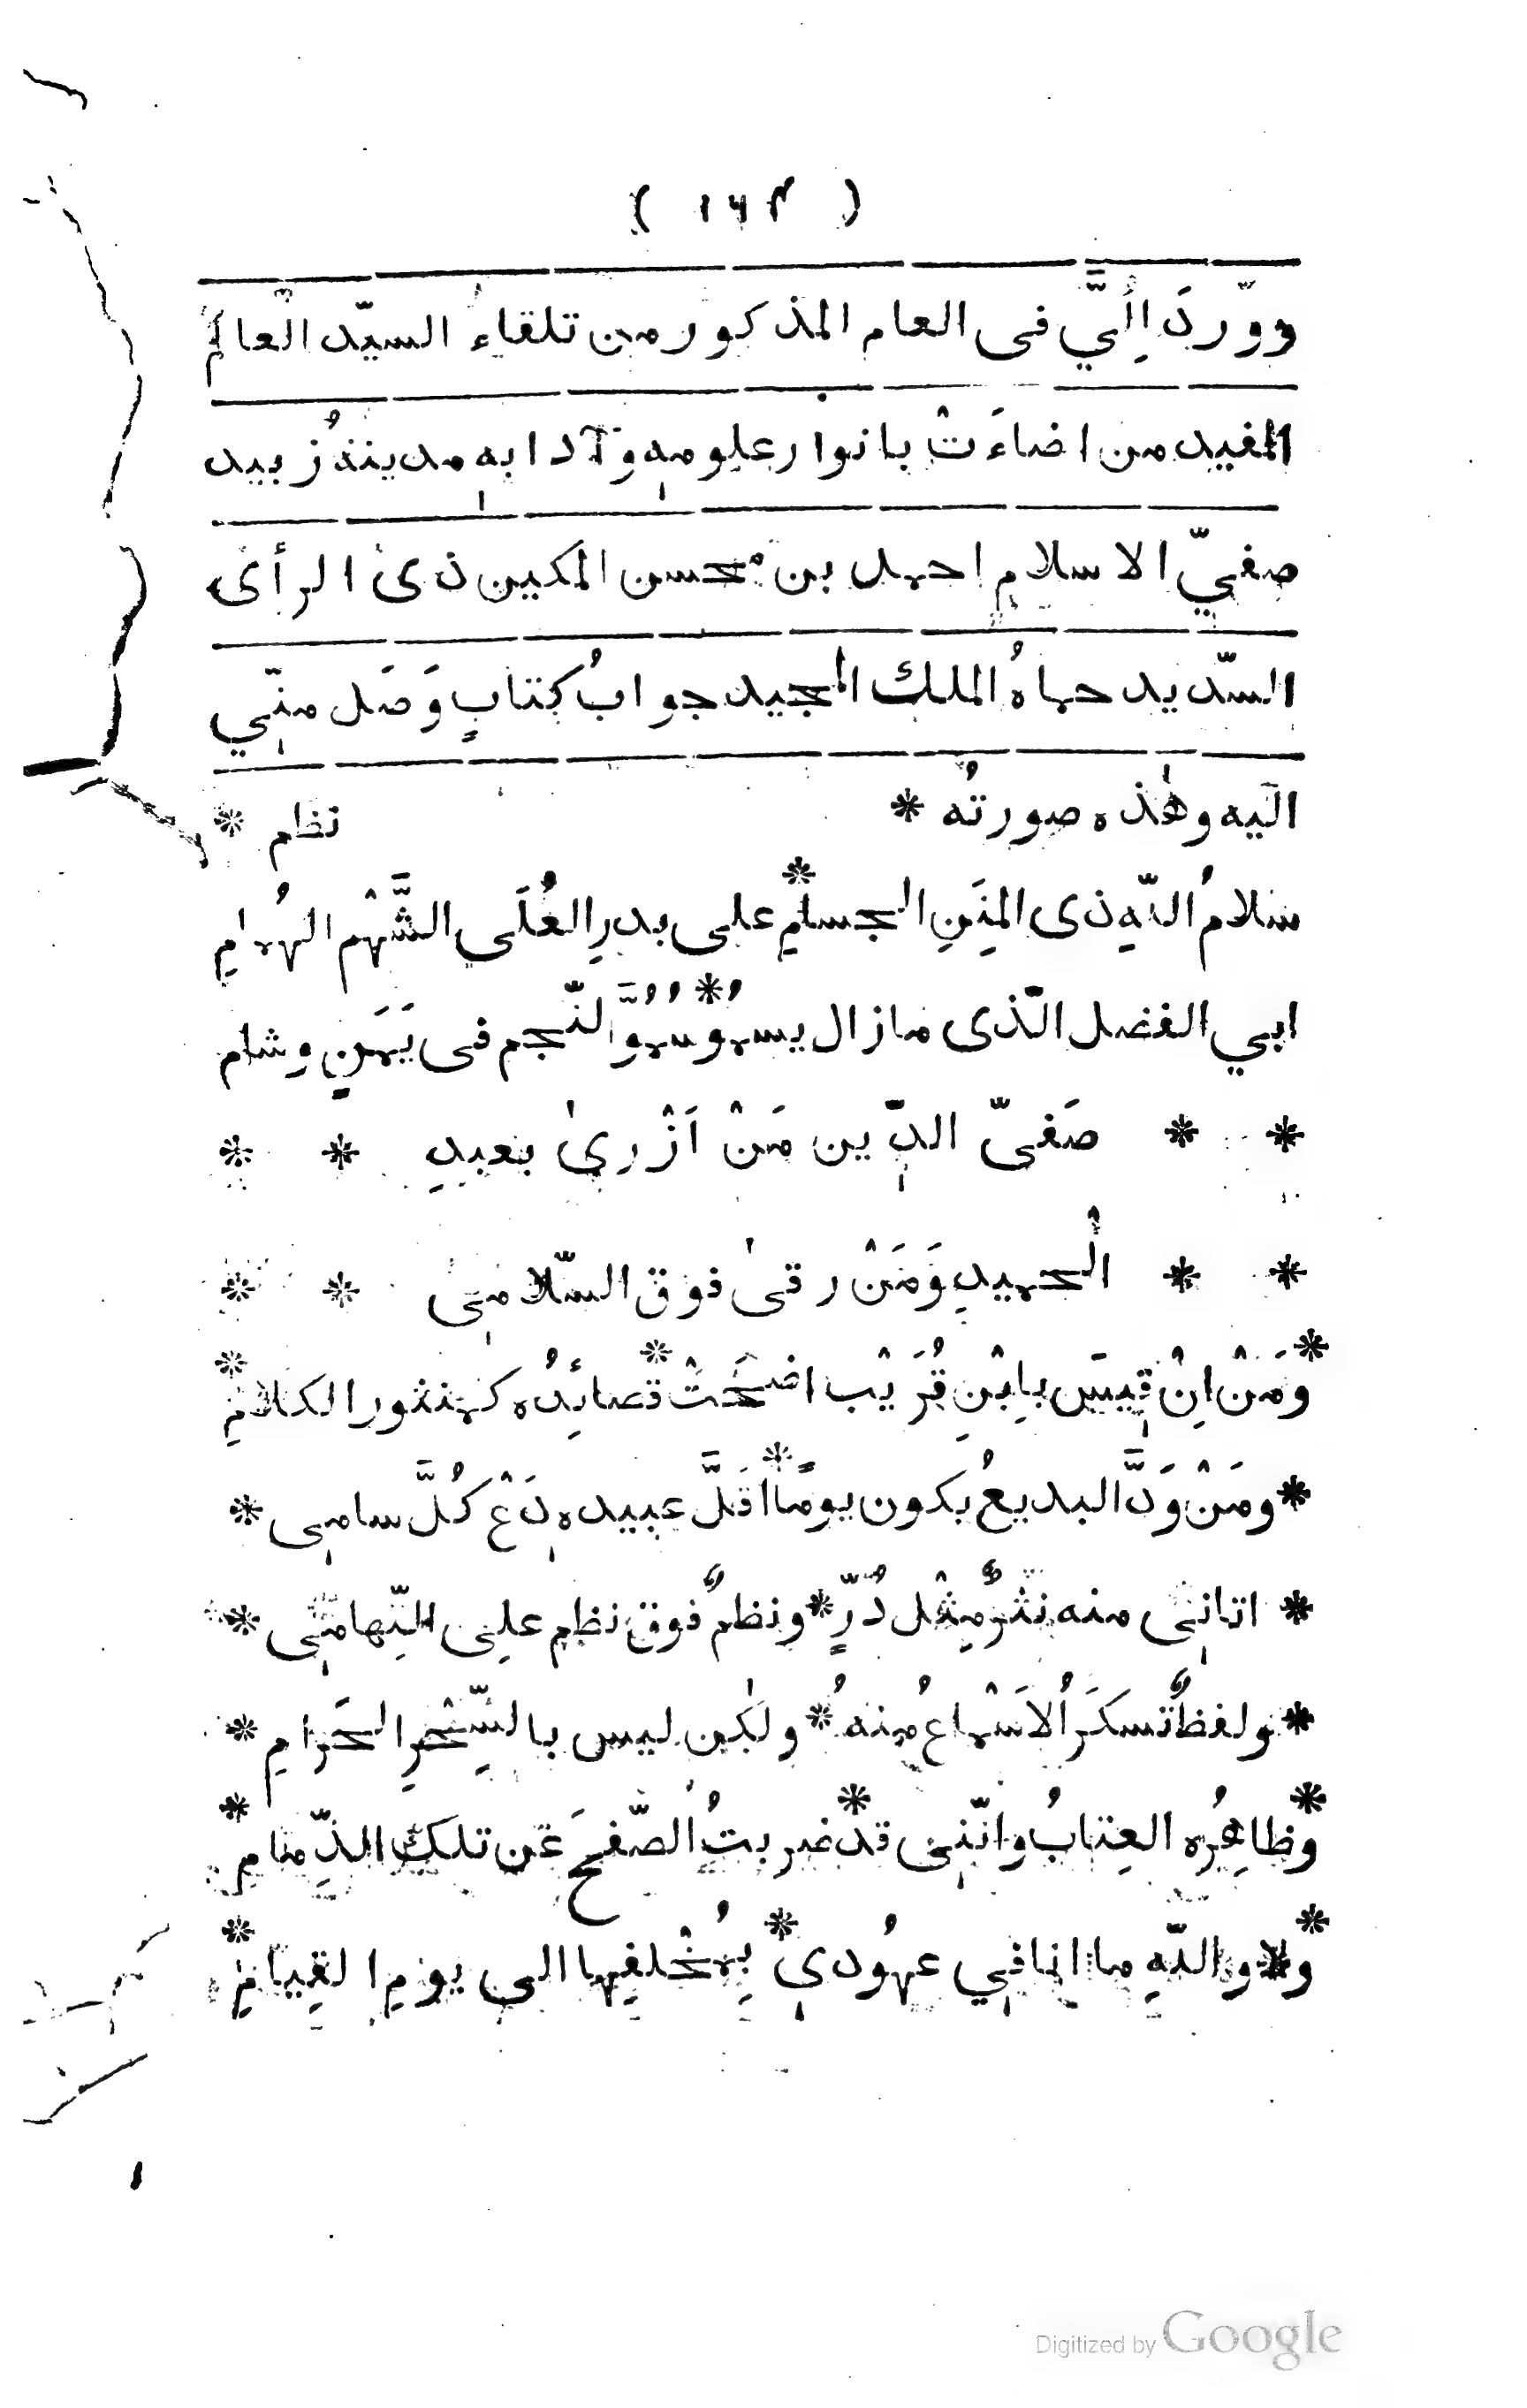 ( ١٦٣ )
وورّدَ اِلَيَّ فى العام المذكور من تلقاء السيّد العالم
المفيد من اضاءَتْ بانوار علومه وَآدابه مدينةُ زبيد
صفيّ الاسلام احمد بن محسن المكين ذى الرأى
السّديد حماهُ الملك المجيد جوابُ كتابٍ وَصَل منّي
اليه وهٰذه صورتُه * نظم *
سَلامُ اللّهِ ذى المِنَنِ الجسامِ * على بدرِ العُلَى الشَّهْم الهُمامِ
ابي الفضل الّذى مازال يسمُو * سُمُوَّ النّجم فى يَمَنٍ وشام
* * صَفىّ الدّين مَنْ اَزْرىٰ بعبدِ * *
* * الْحميدِ وَمَنْ رقىٰ فوق السّلامى * *
* ومَنْ اِنْ قِيسَ بابْنِ قُرَيْب اضحَتْ * قصائدُه كمنثور الكلامِ *
* ومَنْ وَدَّ البديعُ يكون يومًا * اَقَلَّ عبيده دَعْ كُلَّ سامى *
* اتانى منه نثرٌ مِثْل دُرٍّ * ونظمٌ فوق نظم على التِّهامى *
* ولفظٌ تسكَرُ الاَسْماعُ منه * ولٰكن ليس بالسِّحْرِ الحَرامِ *
* وظاهِرُه العِتابُ وانّنى قد * ضربتُ الصّفحَ عَن تلك الذِّمام *
* ولا واللّهِ ما انا في عهُودي * بِمُخْلفِها الى يومِ القِيامِ *
Digitized by Google